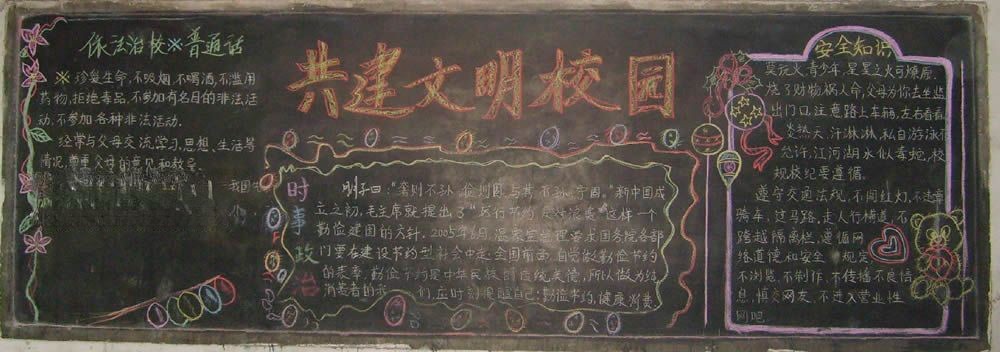 依法治校※普通话
※ 珍爱生命,不吸烟,不喝酒,不滥用
药物,拒绝毒品,不参加有名目的非法活
动,不参加各种非法活动.
经常与父母交流学习,思想,生活等
情况,尊重父母的意见和教导
我国
们
共建文明校园
时事政治
"奢则不孙,俭则固,与其不孙,宁固."新中国成
立之初,毛主席就提出了"厉行节约 反对浪费"这样一个
勤俭建国的方针.2005年6月,温家宝总理要求国务院各部
门要在建设节约型社会中走全国前面,自觉做勤俭节约
的表率,勤俭节约是中华民族的传统美德,所以做为
消费者的 们,应时刻提醒自己:勤俭节约,健康消费
安全知识
莫玩火,青少年,星星之火可燎原.
烧了财物祸人命,父母为你去坐监
出门口,注意路上车辆,左右看看,
炎热天,汗淋淋,私自游泳不
允许,江河湖水似毒蛇,校
规校纪要遵循.
遵守交通法规,不闯红灯,不违章
骑车,过马路,走人行横道,不
跨越隔离栏,遵循网
络道德和安全 规定
不浏览,不制作,不传播不良信
息,慎交网友,不进入营业性
网吧